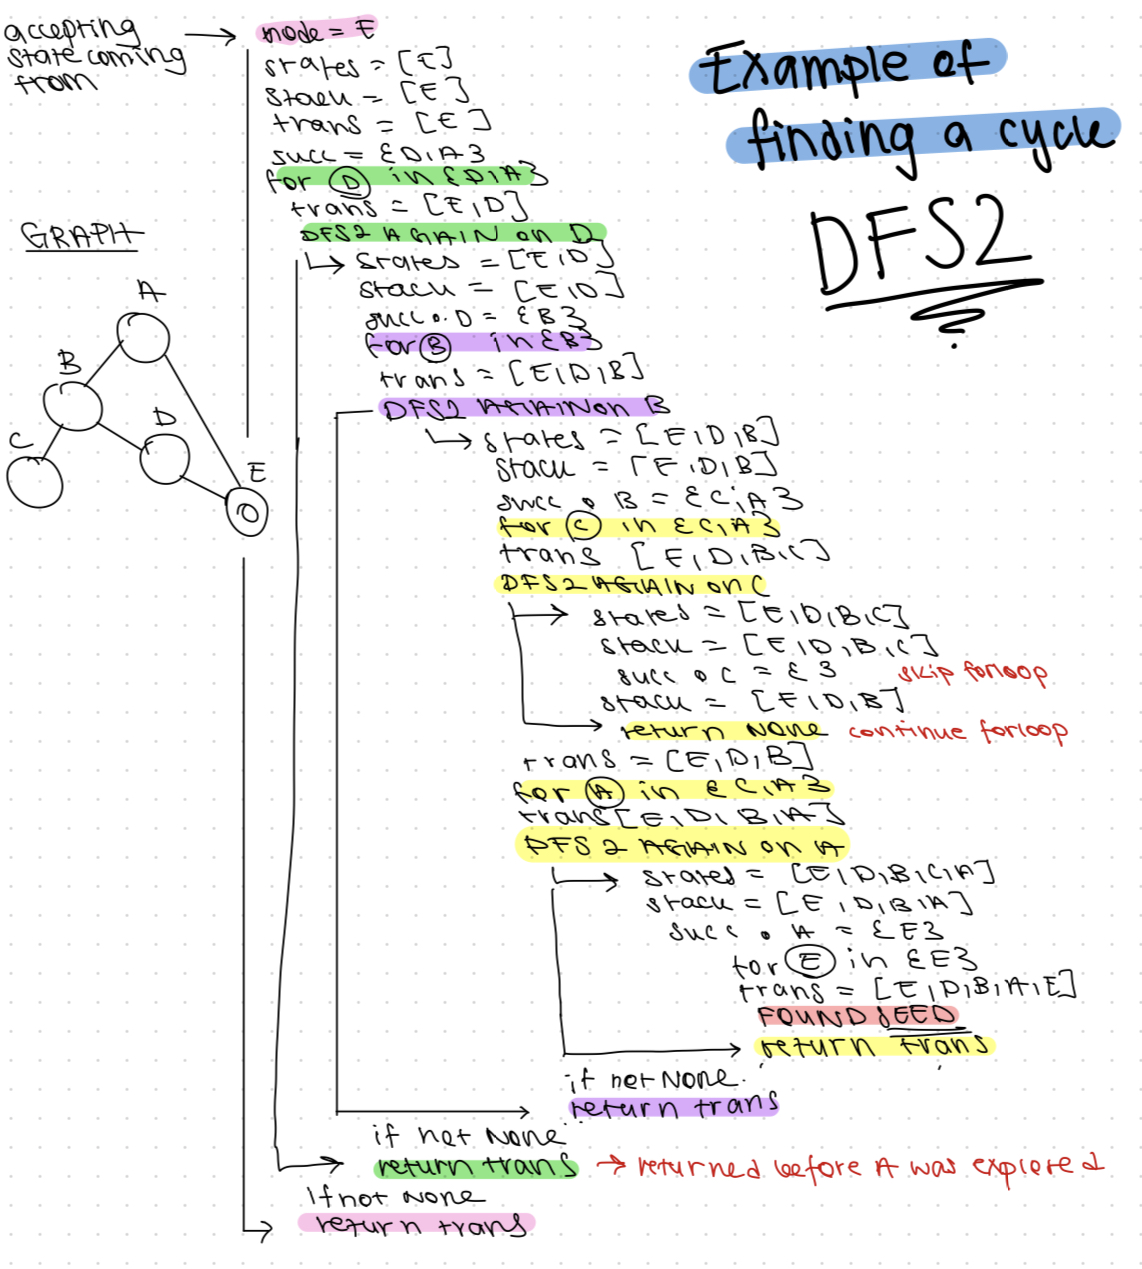 accepting
state coming
from
node = E
states = [E]
stack = [E]
trans = [E]
succ = {D,A}
for D in {D,A}
trans = [E,D]
DFS2 AGAIN on D
states = [E,D]
stack = [E,D]
succ • D = {B}
for B in {B}
trans = [E,D,B]
DFS2 AGAIN on B
states = [E,D,B]
stack = [E,D,B]
succ • B = {C,A}
for C in {C,A}
trans [E,D,B,C]
DFS2 AGAIN on C
states = [E,D,B,C]
stack = [E,D,B,C]
succ • C = { } skip forloop
stack = [E,D,B]
return None continue forloop
trans = [E,D,B]
for A in {C,A}
trans [E,D,B,A]
DFS2 AGAIN on A
states = [E,D,B,C,A]
stack = [E,D,B,A]
succ • A = {E}
for E in {E}
trans = [E,D,B,A,E]
FOUND SEED
return trans
if not None.
return trans
if not None
return trans → returned before A was explored
If not None
return trans
Example of
finding a cycle
DFS2
GRAPH
A
B
D
C
E